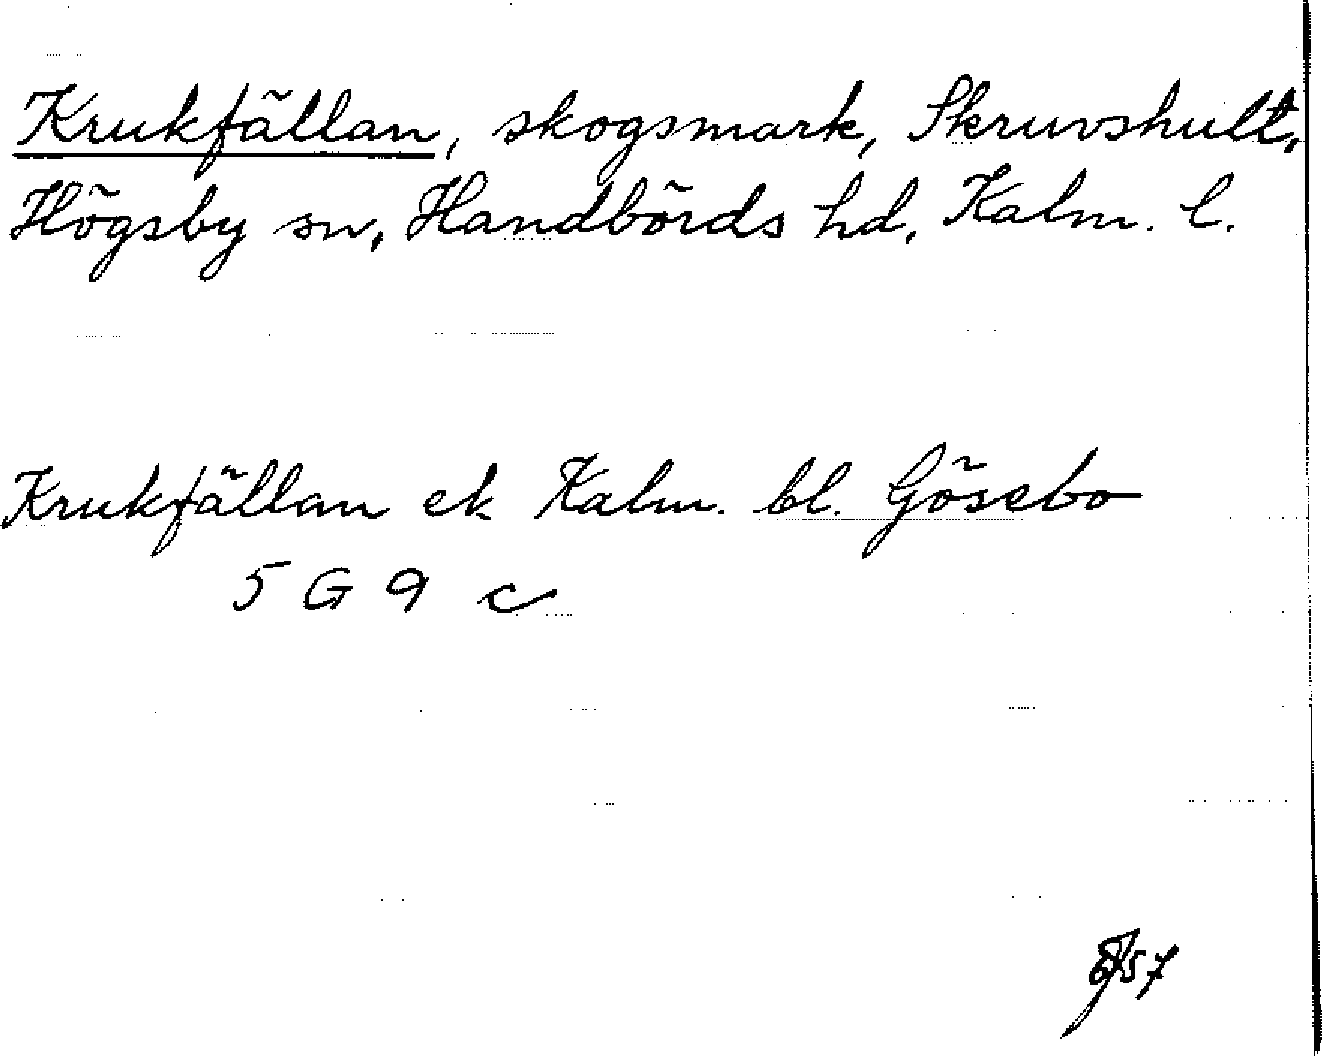 Krukfällan, skogsmark, Skruvshult,
Högsby sn, Handbörds hd, Kalm. l.
Krukfällan ek Kalm. bl. Gösebo
5 G 9 c
57